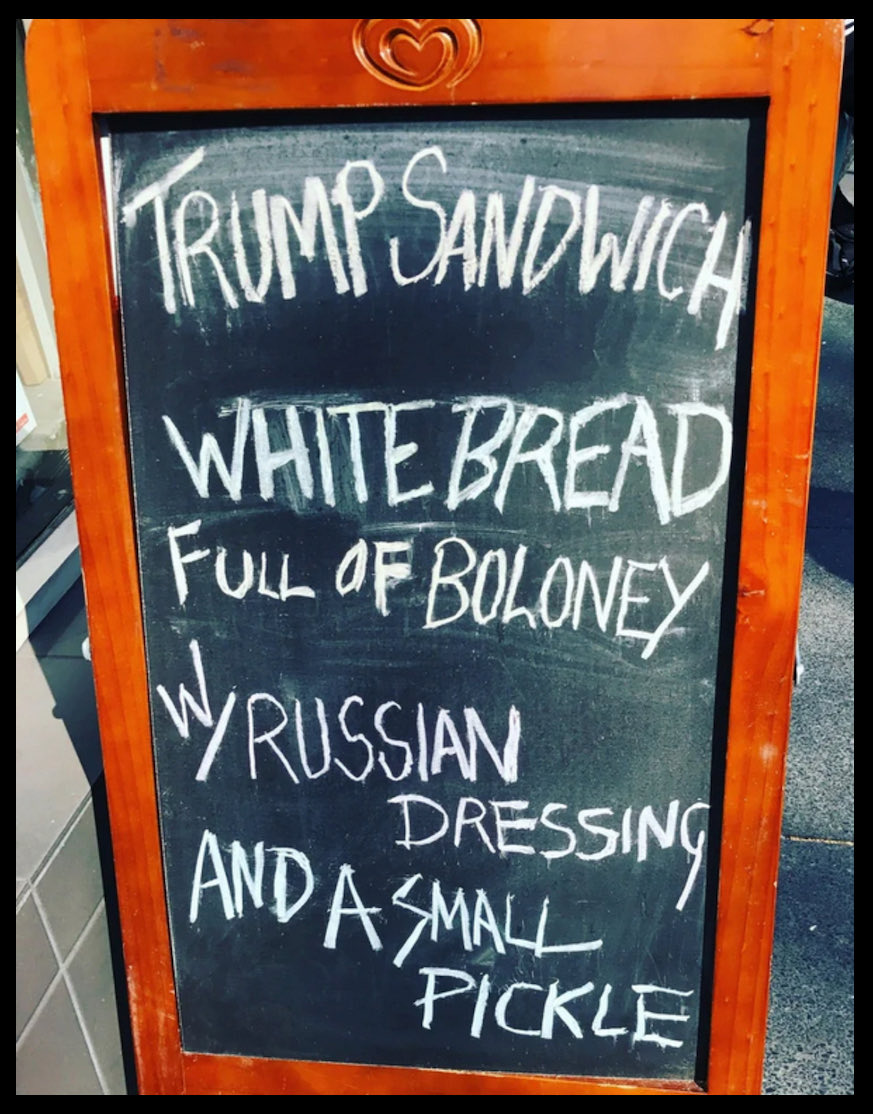 TRUMP SANDWICH
WHITE BREAD
FULL OF BOLONEY
W/ RUSSIAN
DRESSING
AND A SMALL
PICKLE